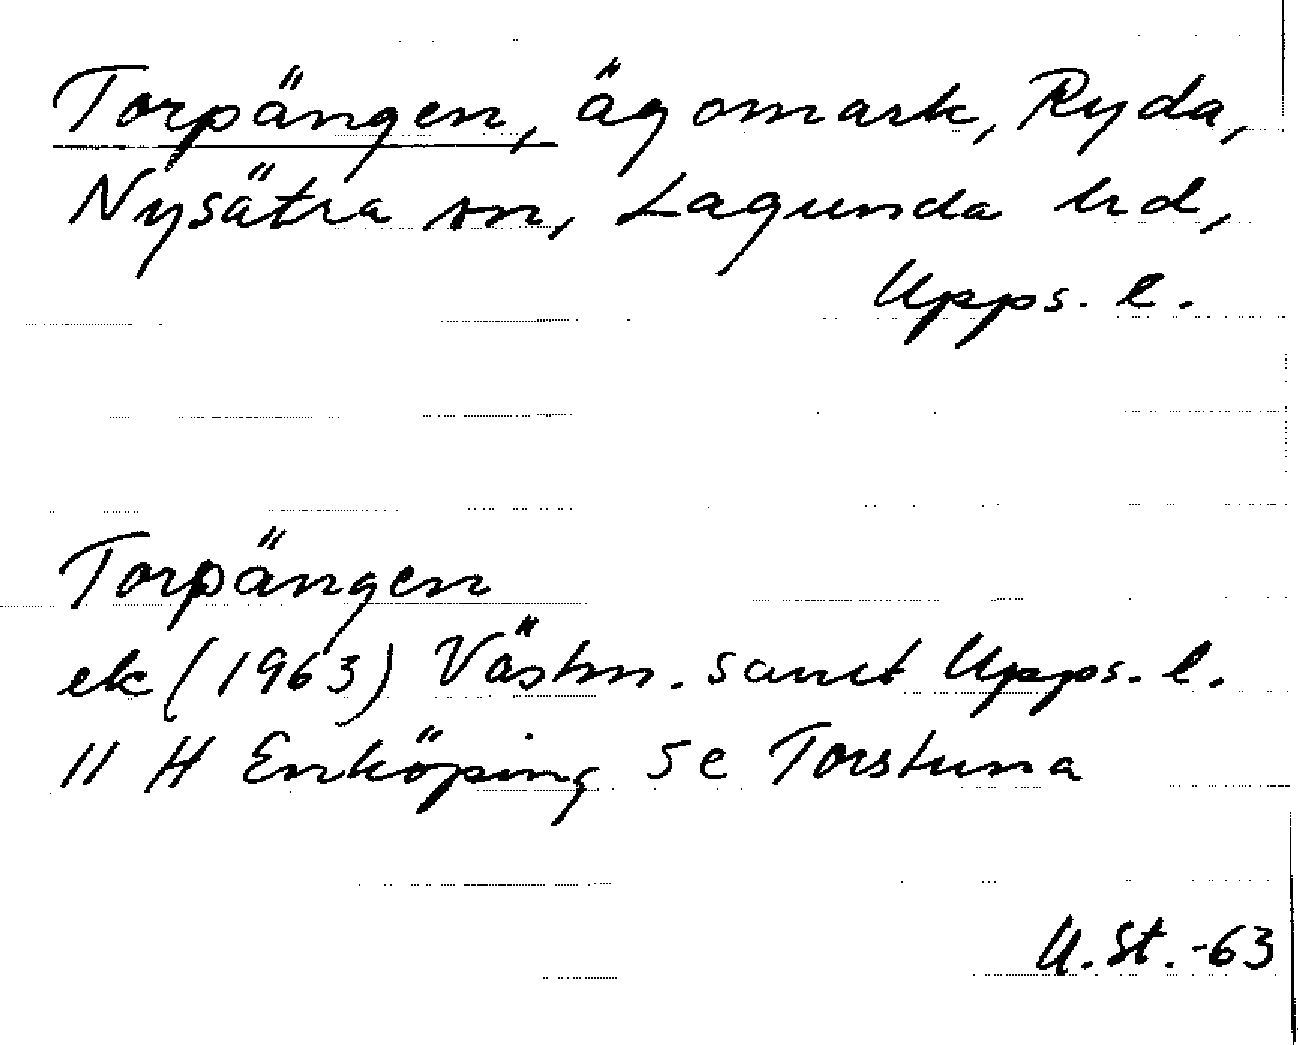 Torpängen, ägomark, Ryda,
Nysätra sn, Lagunda hd,
Upps. l.
Torpängen
ek (1963) Västm. samt Upps. l.
11 H Enköping 5 e Torstuna
U. St. -63